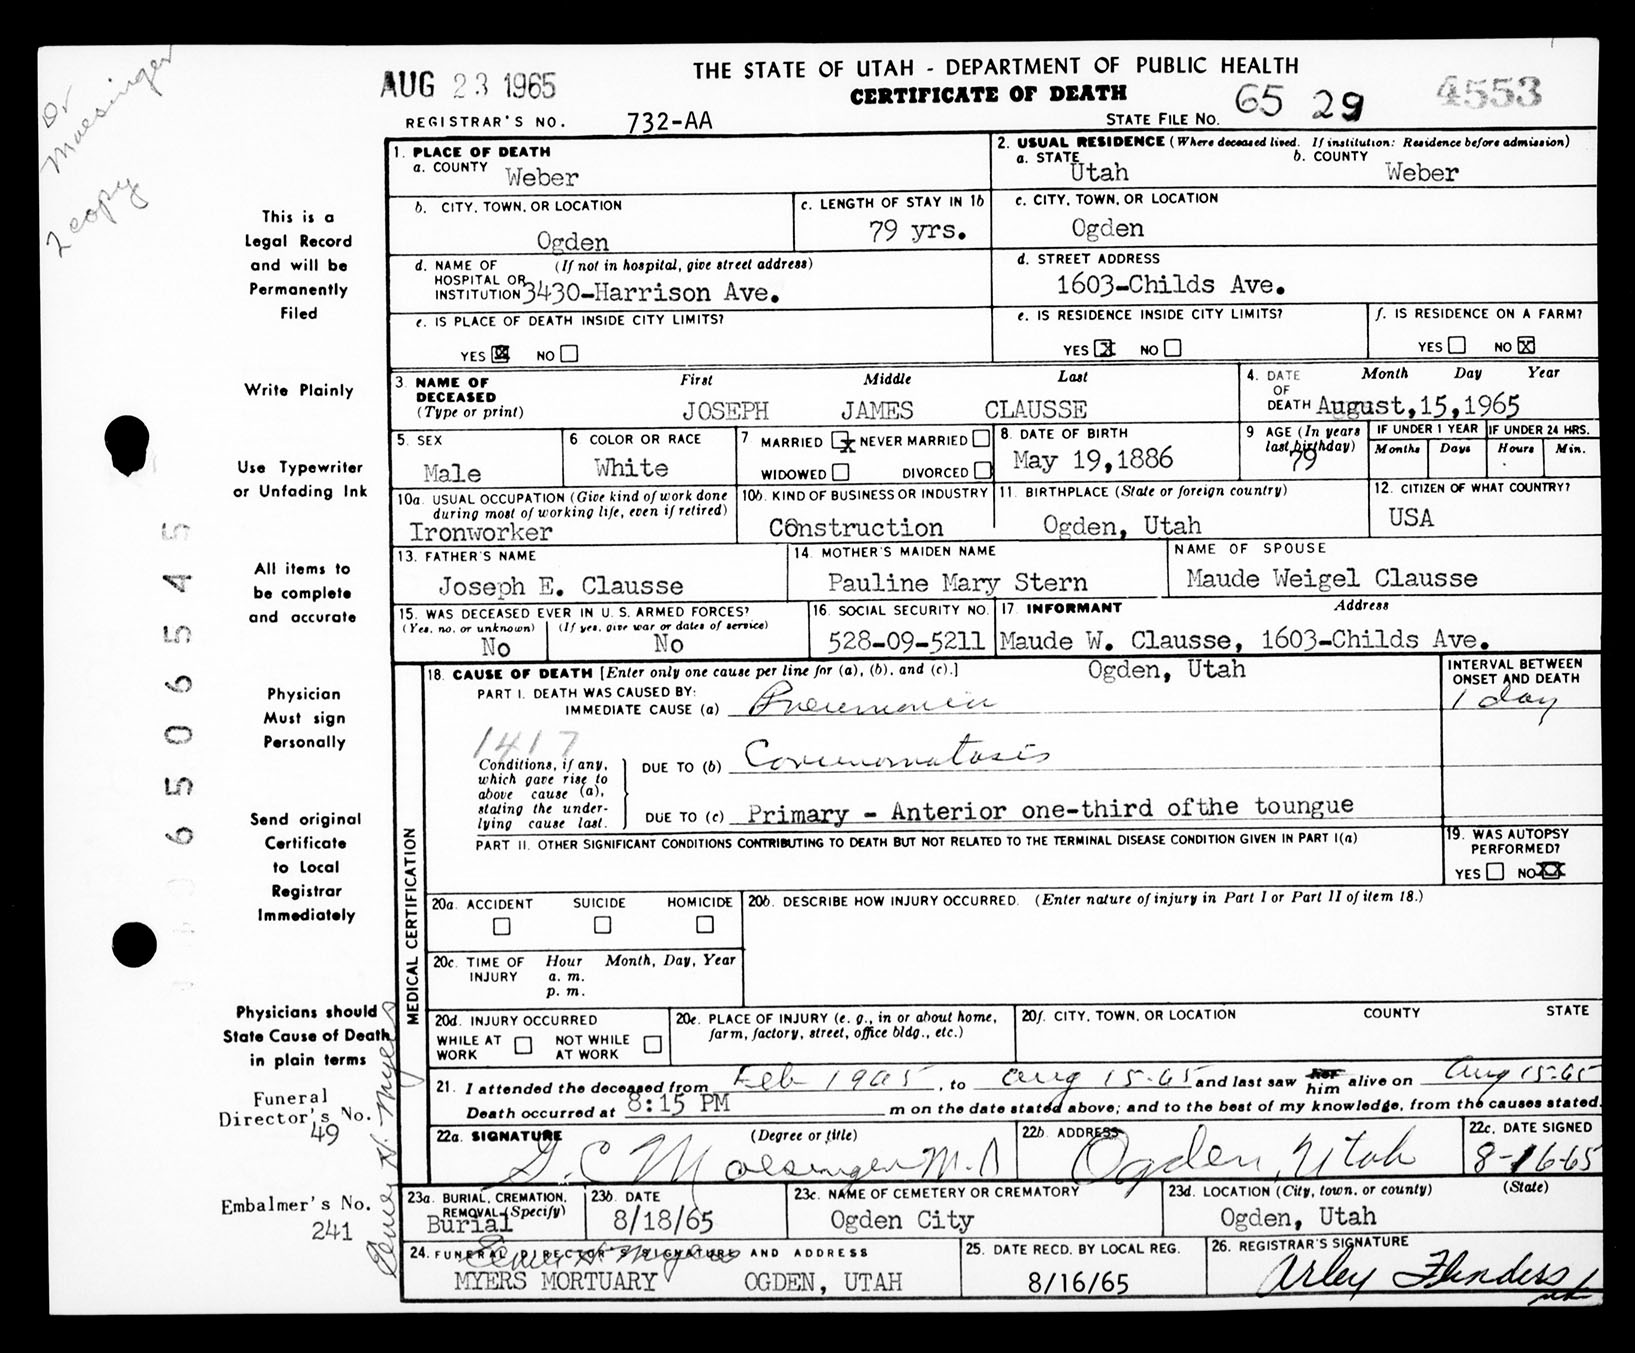 Dr
Moesinger
2 copy
AUG 23 1965
THE STATE OF UTAH - DEPARTMENT OF PUBLIC HEALTH
CERTIFICATE OF DEATH
REGISTRAR'S NO. 732-AA
STATE FILE NO. 65 29 4553
This is a
Legal Record
and will be
Permanently
Filed
Write Plainly
Use Typewriter
or Unfading Ink
All items to
be complete
and accurate
Physician
Must sign
Personally
Send original
Certificate
to Local
Registrar
Immediately
Physicians should
State Cause of Death
in plain terms
Funeral
Director's No.
49
Embalmer's No.
241
Elmer H. Myers
65065545
1. PLACE OF DEATH
a. COUNTY Weber
2. USUAL RESIDENCE (Where deceased lived. If institution: Residence before admission)
a. STATE Utah b. COUNTY Weber
b. CITY, TOWN, OR LOCATION Ogden
c. LENGTH OF STAY IN 1b 79 yrs.
c. CITY, TOWN, OR LOCATION Ogden
d. NAME OF (If not in hospital, give street address)
HOSPITAL OR
INSTITUTION 3430-Harrison Ave.
d. STREET ADDRESS
1603-Childs Ave.
e. IS PLACE OF DEATH INSIDE CITY LIMITS?
YES X NO
e. IS RESIDENCE INSIDE CITY LIMITS?
YES X NO
f. IS RESIDENCE ON A FARM?
YES NO X
3. NAME OF DECEASED (Type or print) First Middle Last
JOSEPH JAMES CLAUSSE
4. DATE OF DEATH Month Day Year
August,15,1965
5. SEX Male
6 COLOR OR RACE White
7 MARRIED X NEVER MARRIED
WIDOWED DIVORCED
8. DATE OF BIRTH May 19,1886
9 AGE (In years last birthday) 79
IF UNDER 1 YEAR Months Days
IF UNDER 24 HRS. Hours Min.
10a. USUAL OCCUPATION (Give kind of work done
during most of working life, even if retired)
Ironworker
10b. KIND OF BUSINESS OR INDUSTRY
Construction
11. BIRTHPLACE (State or foreign country)
Ogden, Utah
12. CITIZEN OF WHAT COUNTRY?
USA
13. FATHER'S NAME
Joseph E. Clausse
14. MOTHER'S MAIDEN NAME
Pauline Mary Stern
NAME OF SPOUSE
Maude Weigel Clausse
15. WAS DECEASED EVER IN U. S. ARMED FORCES?
(Yes, no, or unknown) (If yes, give war or dates of service)
No No
16. SOCIAL SECURITY NO.
528-09-5211
17. INFORMANT Address
Maude W. Clausse, 1603-Childs Ave.
Ogden, Utah
MEDICAL CERTIFICATION
18. CAUSE OF DEATH [Enter only one cause per line for (a), (b), and (c).]
INTERVAL BETWEEN
ONSET AND DEATH
PART I. DEATH WAS CAUSED BY:
IMMEDIATE CAUSE (a) Pneumonia 1 day
1417
Conditions, if any,
which gave rise to
above cause (a),
stating the under-
lying cause last.
DUE TO (b) Carcinomatosis
DUE TO (c) Primary - Anterior one-third ofthe toungue
PART II. OTHER SIGNIFICANT CONDITIONS CONTRIBUTING TO DEATH BUT NOT RELATED TO THE TERMINAL DISEASE CONDITION GIVEN IN PART I(a)
19. WAS AUTOPSY
PERFORMED?
YES NO X
20a. ACCIDENT SUICIDE HOMICIDE
20b. DESCRIBE HOW INJURY OCCURRED. (Enter nature of injury in Part I or Part II of item 18.)
20c. TIME OF INJURY Hour Month, Day, Year
a. m.
p. m.
20d. INJURY OCCURRED
WHILE AT WORK NOT WHILE AT WORK
20e. PLACE OF INJURY (e. g., in or about home,
farm, factory, street, office bldg., etc.)
20f. CITY, TOWN, OR LOCATION COUNTY STATE
21. I attended the deceased from Feb 1965, to Aug 15-65 and last saw her him alive on Aug 15-65
Death occurred at 8:15 PM m on the date stated above; and to the best of my knowledge, from the causes stated.
22a. SIGNATURE (Degree or title)
G. C. Moesinger M.D
22b. ADDRESS
Ogden, Utah
22c. DATE SIGNED
8-16-65
23a. BURIAL, CREMATION,
REMOVAL (Specify)
Burial
23b. DATE
8/18/65
23c. NAME OF CEMETERY OR CREMATORY
Ogden City
23d. LOCATION (City, town, or county) (State)
Ogden, Utah
24. FUNERAL DIRECTOR'S SIGNATURE AND ADDRESS
Elmer H. Myers
MYERS MORTUARY OGDEN, UTAH
25. DATE RECD. BY LOCAL REG.
8/16/65
26. REGISTRAR'S SIGNATURE
Arley Flinders